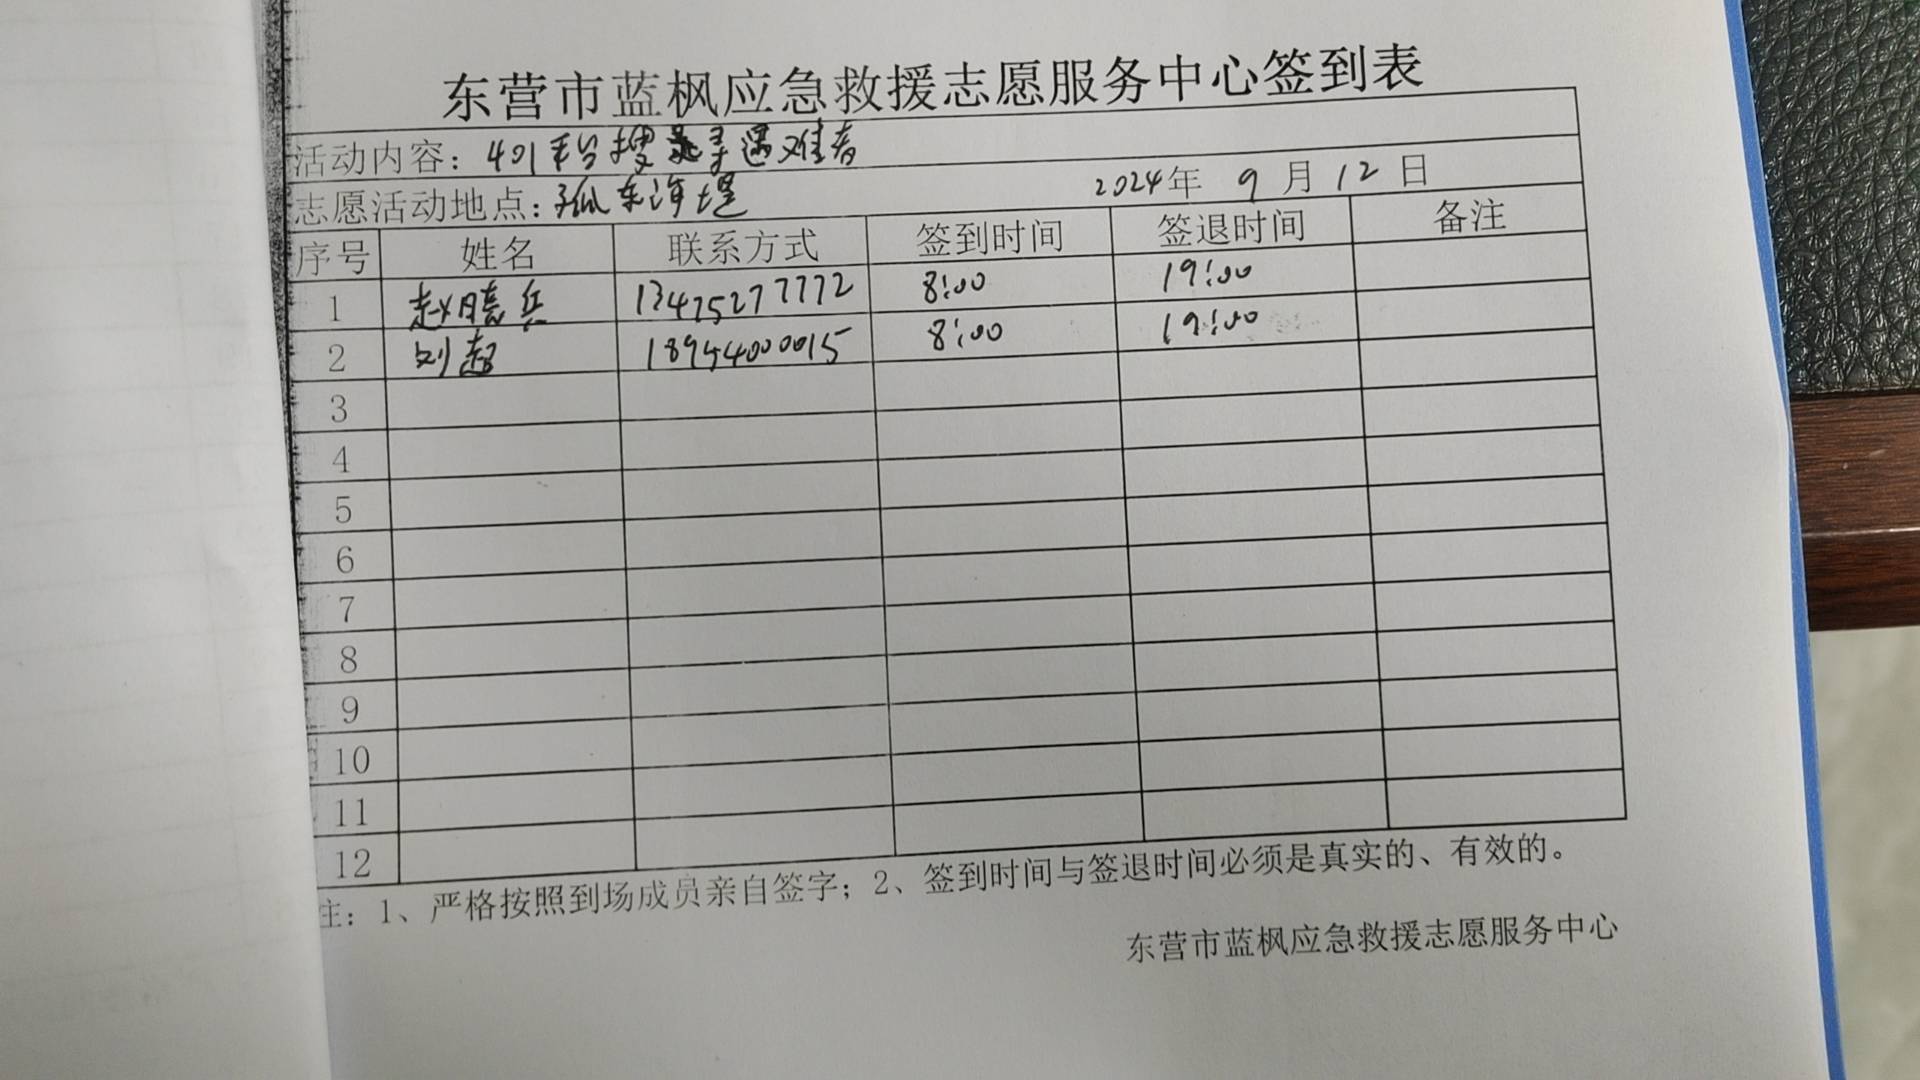 东营市蓝枫应急救援志愿服务中心签到表
活动内容：401平台搜寻遇难者
志愿活动地点：孤东海堤 2024年 9月12日
序号 姓名 联系方式 签到时间 签退时间 备注
1 赵晓兵 13475277772 8:00 19:00
2 刘超 18954000015 8:00 19:00
3
4
5
6
7
8
9
10
11
12
注：1、严格按照到场成员亲自签字；2、签到时间与签退时间必须是真实的、有效的。
东营市蓝枫应急救援志愿服务中心